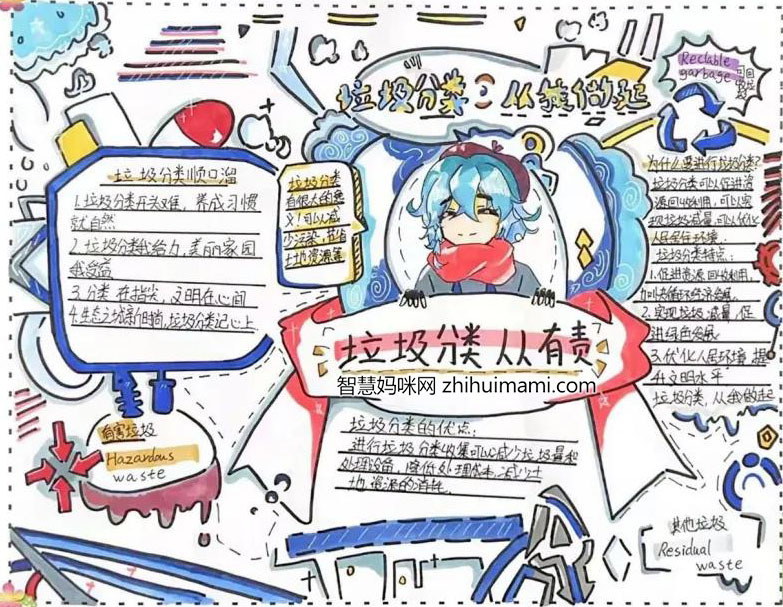 垃圾分类：从我做起
Reclable
garbage
可回收垃圾
垃圾分类顺口溜
1.垃圾分类开头难，养成习惯
就自然
2.垃圾分类我给力，美丽家园
我受益
3.分类在指尖，文明在心间
4.生态之城新时尚，垃圾分类记心上
垃圾分类
有很大的意
义！可以减
少污染，节省
土地资源等
为什么要进行垃圾分类？
垃圾分类可以促进资
源回收利用，可以实
现垃圾减量，可以优化
人民居住环境。
垃圾分类特点：
1.促进资源回收利用，
加快循环经济发展。
2.实现垃圾减量，促
进绿色发展
3.优化人居环境，提
升文明水平
垃圾分类，从我做起
垃圾分类 人人有责
智慧妈咪网 zhihuimami.com
垃圾分类的优点：
进行垃圾分类收集可以减少垃圾量和
处理设备，降低处理成本，减少土
地资源的消耗。
有害垃圾
Hazardous
waste
其他垃圾
Residual
waste